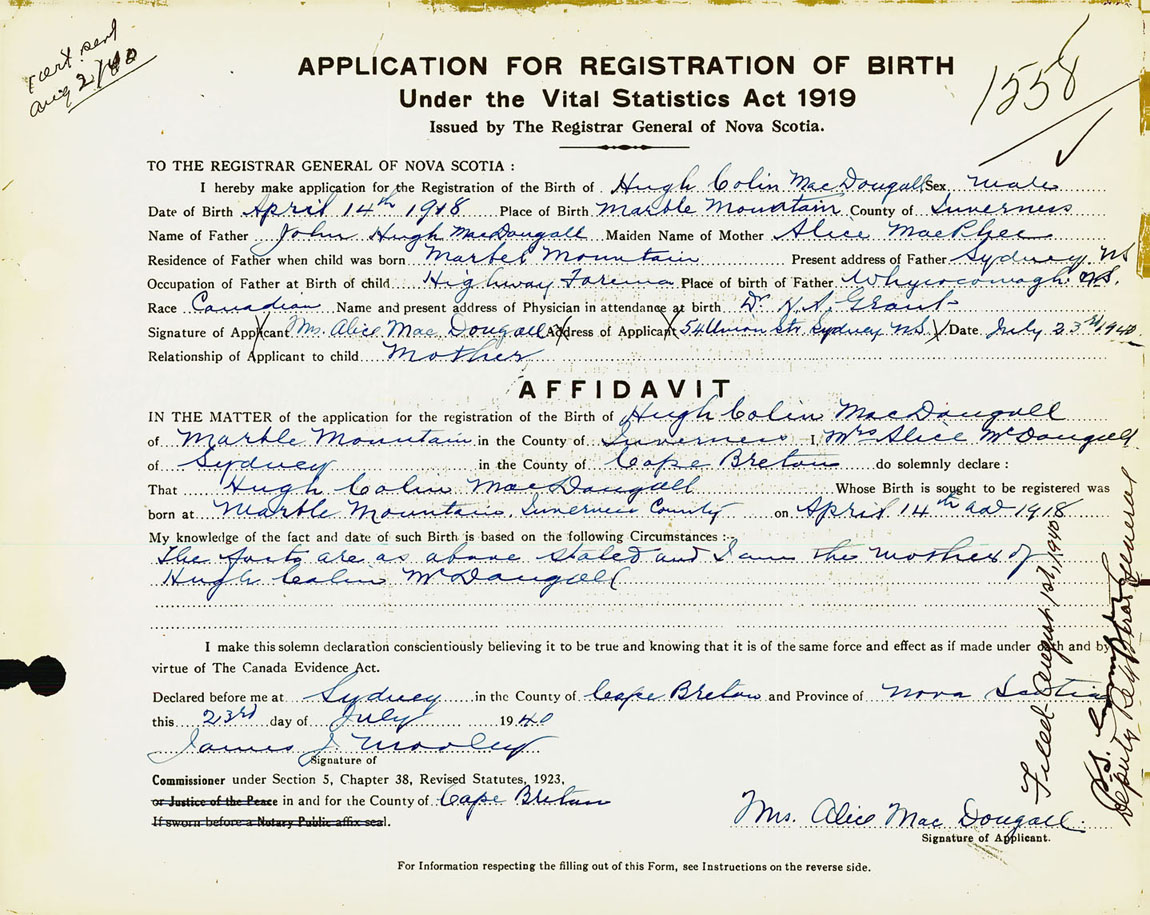 Cert sent
Aug 2/40
1558
APPLICATION FOR REGISTRATION OF BIRTH
Under the Vital Statistics Act 1919
Issued by The Registrar General of Nova Scotia.
TO THE REGISTRAR GENERAL OF NOVA SCOTIA :
I hereby make application for the Registration of the Birth of Hugh Colin MacDougall Sex Male
Date of Birth April 14th 1918 Place of Birth Marble Mountain County of Inverness
Name of Father John Hugh MacDougall Maiden Name of Mother Alice MacPhee
Residence of Father when child was born Marbel Mountain Present address of Father Sydney NS
Occupation of Father at Birth of child Highway Foreman Place of birth of Father Whycocomagh N.S.
Race Canadian Name and present address of Physician in attendance at birth Dr. N.A. Grant
Signature of Applicant Mrs. Alice Mac Dougall Address of Applicant 54 Union Str. Sydney N.S. Date July 23rd 1940
Relationship of Applicant to child Mother
AFFIDAVIT
IN THE MATTER of the application for the registration of the Birth of Hugh Colin MacDougall
of Marble Mountain in the County of Inverness I, Mrs Alice McDougall
of Sydney in the County of Cape Breton do solemnly declare :
That Hugh Colin MacDougall Whose Birth is sought to be registered was
born at Marble Mountain, Inverness County on April 14th ad 1918
My knowledge of the fact and date of such Birth is based on the following Circumstances :-
The facts are as above stated and I am the mother of
Hugh Colin McDougall
I make this solemn declaration conscientiously believing it to be true and knowing that it is of the same force and effect as if made under oath and by
virtue of The Canada Evidence Act.
Declared before me at Sydney in the County of Cape Breton and Province of Nova Scotia
this 23rd day of July 1940
James J
Signature of
Commissioner under Section 5, Chapter 38, Revised Statutes, 1923,
or Justice of the Peace in and for the County of Cape Breton
If sworn before a Notary Public affix seal.
Mrs. Alice Mac Dougall.
Signature of Applicant.
For Information respecting the filling out of this Form, see Instructions on the reverse side.
Filed August 1st, 1940
Deputy Registrar General